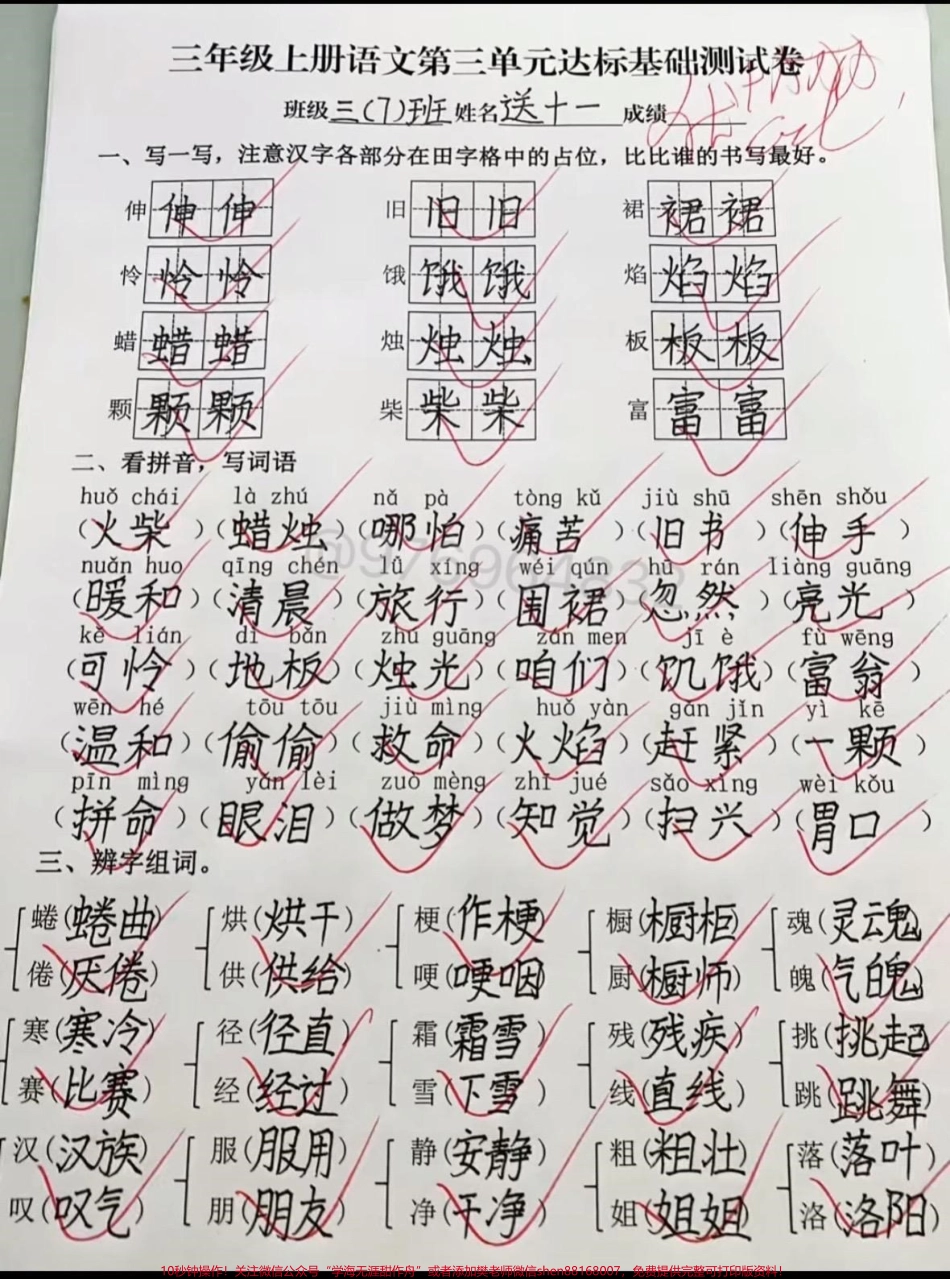 三年级上册语文第三单元达标基础测试卷
班级三(7)班 姓名送十一 成绩
一、写一写，注意汉字各部分在田字格中的占位，比比谁的书写最好。
伸 伸 伸 旧 旧 旧 裙 裙 裙
怜 怜 怜 饿 饿 饿 焰 焰 焰
蜡 蜡 蜡 烛 烛 烛 板 板 板
颗 颗 颗 柴 柴 柴 富 富 富
二、看拼音，写词语
huǒ chái là zhú nǎ pà tòng kǔ jiù shū shēn shǒu
（火柴）（蜡烛）（哪怕）（痛苦）（旧书）（伸手）
nuǎn huo qīng chén lǚ xíng wéi qún hū rán liàng guāng
（暖和）（清晨）（旅行）（围裙）（忽然）（亮光）
kě lián dì bǎn zhú guāng zán men jī è fù wēng
（可怜）（地板）（烛光）（咱们）（饥饿）（富翁）
wēn hé tōu tōu jiù mìng huǒ yàn gǎn jǐn yì kē
（温和）（偷偷）（救命）（火焰）（赶紧）（一颗）
pīn mìng yǎn lèi zuò mèng zhī jué sǎo xìng wèi kǒu
（拼命）（眼泪）（做梦）（知觉）（扫兴）（胃口）
三、辨字组词。
蜷(蜷曲) 烘(烘干) 梗(作梗) 橱(橱柜) 魂(灵魂)
倦(厌倦) 供(供给) 哽(哽咽) 厨(橱师) 魄(气魄)
寒(寒冷) 径(径直) 霜(霜雪) 残(残疾) 挑(挑起)
赛(比赛) 经(经过) 雪(下雪) 线(直线) 跳(跳舞)
汉(汉族) 服(服用) 静(安静) 粗(粗壮) 落(落叶)
叹(叹气) 朋(朋友) 净(干净) 姐(姐姐) 洛(洛阳)
@976964832
10秒钟操作！关注微信公众号“学海无涯甜作舟”或者添加樊老师微信shen88168007，免费提供完整可打印版资料！